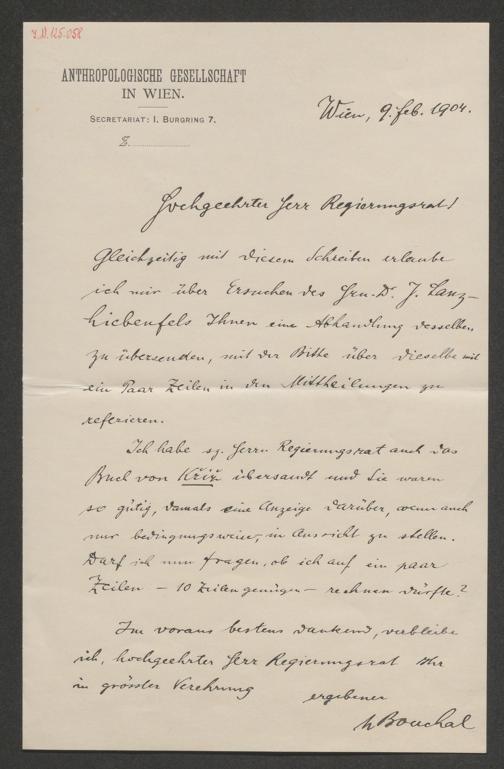 I.N. 125.058
ANTHROPOLOGISCHE GESELLSCHAFT
IN WIEN.
SECRETARIAT: I. BURGRING 7.
Wien, 9. feb. 1904.
Hochgeehrter Herr Regierungsrat!
Gleichzeitig mit diesem Schreiben erlaube
ich mir über Ersuchen des Hrn. Dr. J. Lanz-
Liebenfels Ihnen eine Abhandlung desselben
zu übersenden, mit der Bitte über dieselbe mit
ein Paar Zeilen in den Mittheilungen zu
referieren.
Ich habe sz. Herrn Regierungsrat auch das
Buch von Kříž übersandt und Sie waren
so gütig, damals eine Anzeige darüber, wenn auch
nur bedingungsweise, in Aussicht zu stellen.
Darf ich nun fragen, ob ich auf ein paar
Zeilen – 10 Zeilen genügen – rechnen dürfte?
Im voraus bestens dankend, verbleibe
ich, hochgeehrter Herr Regierungsrat Ihr
in grösster Verehrung
ergebener
Bouchal